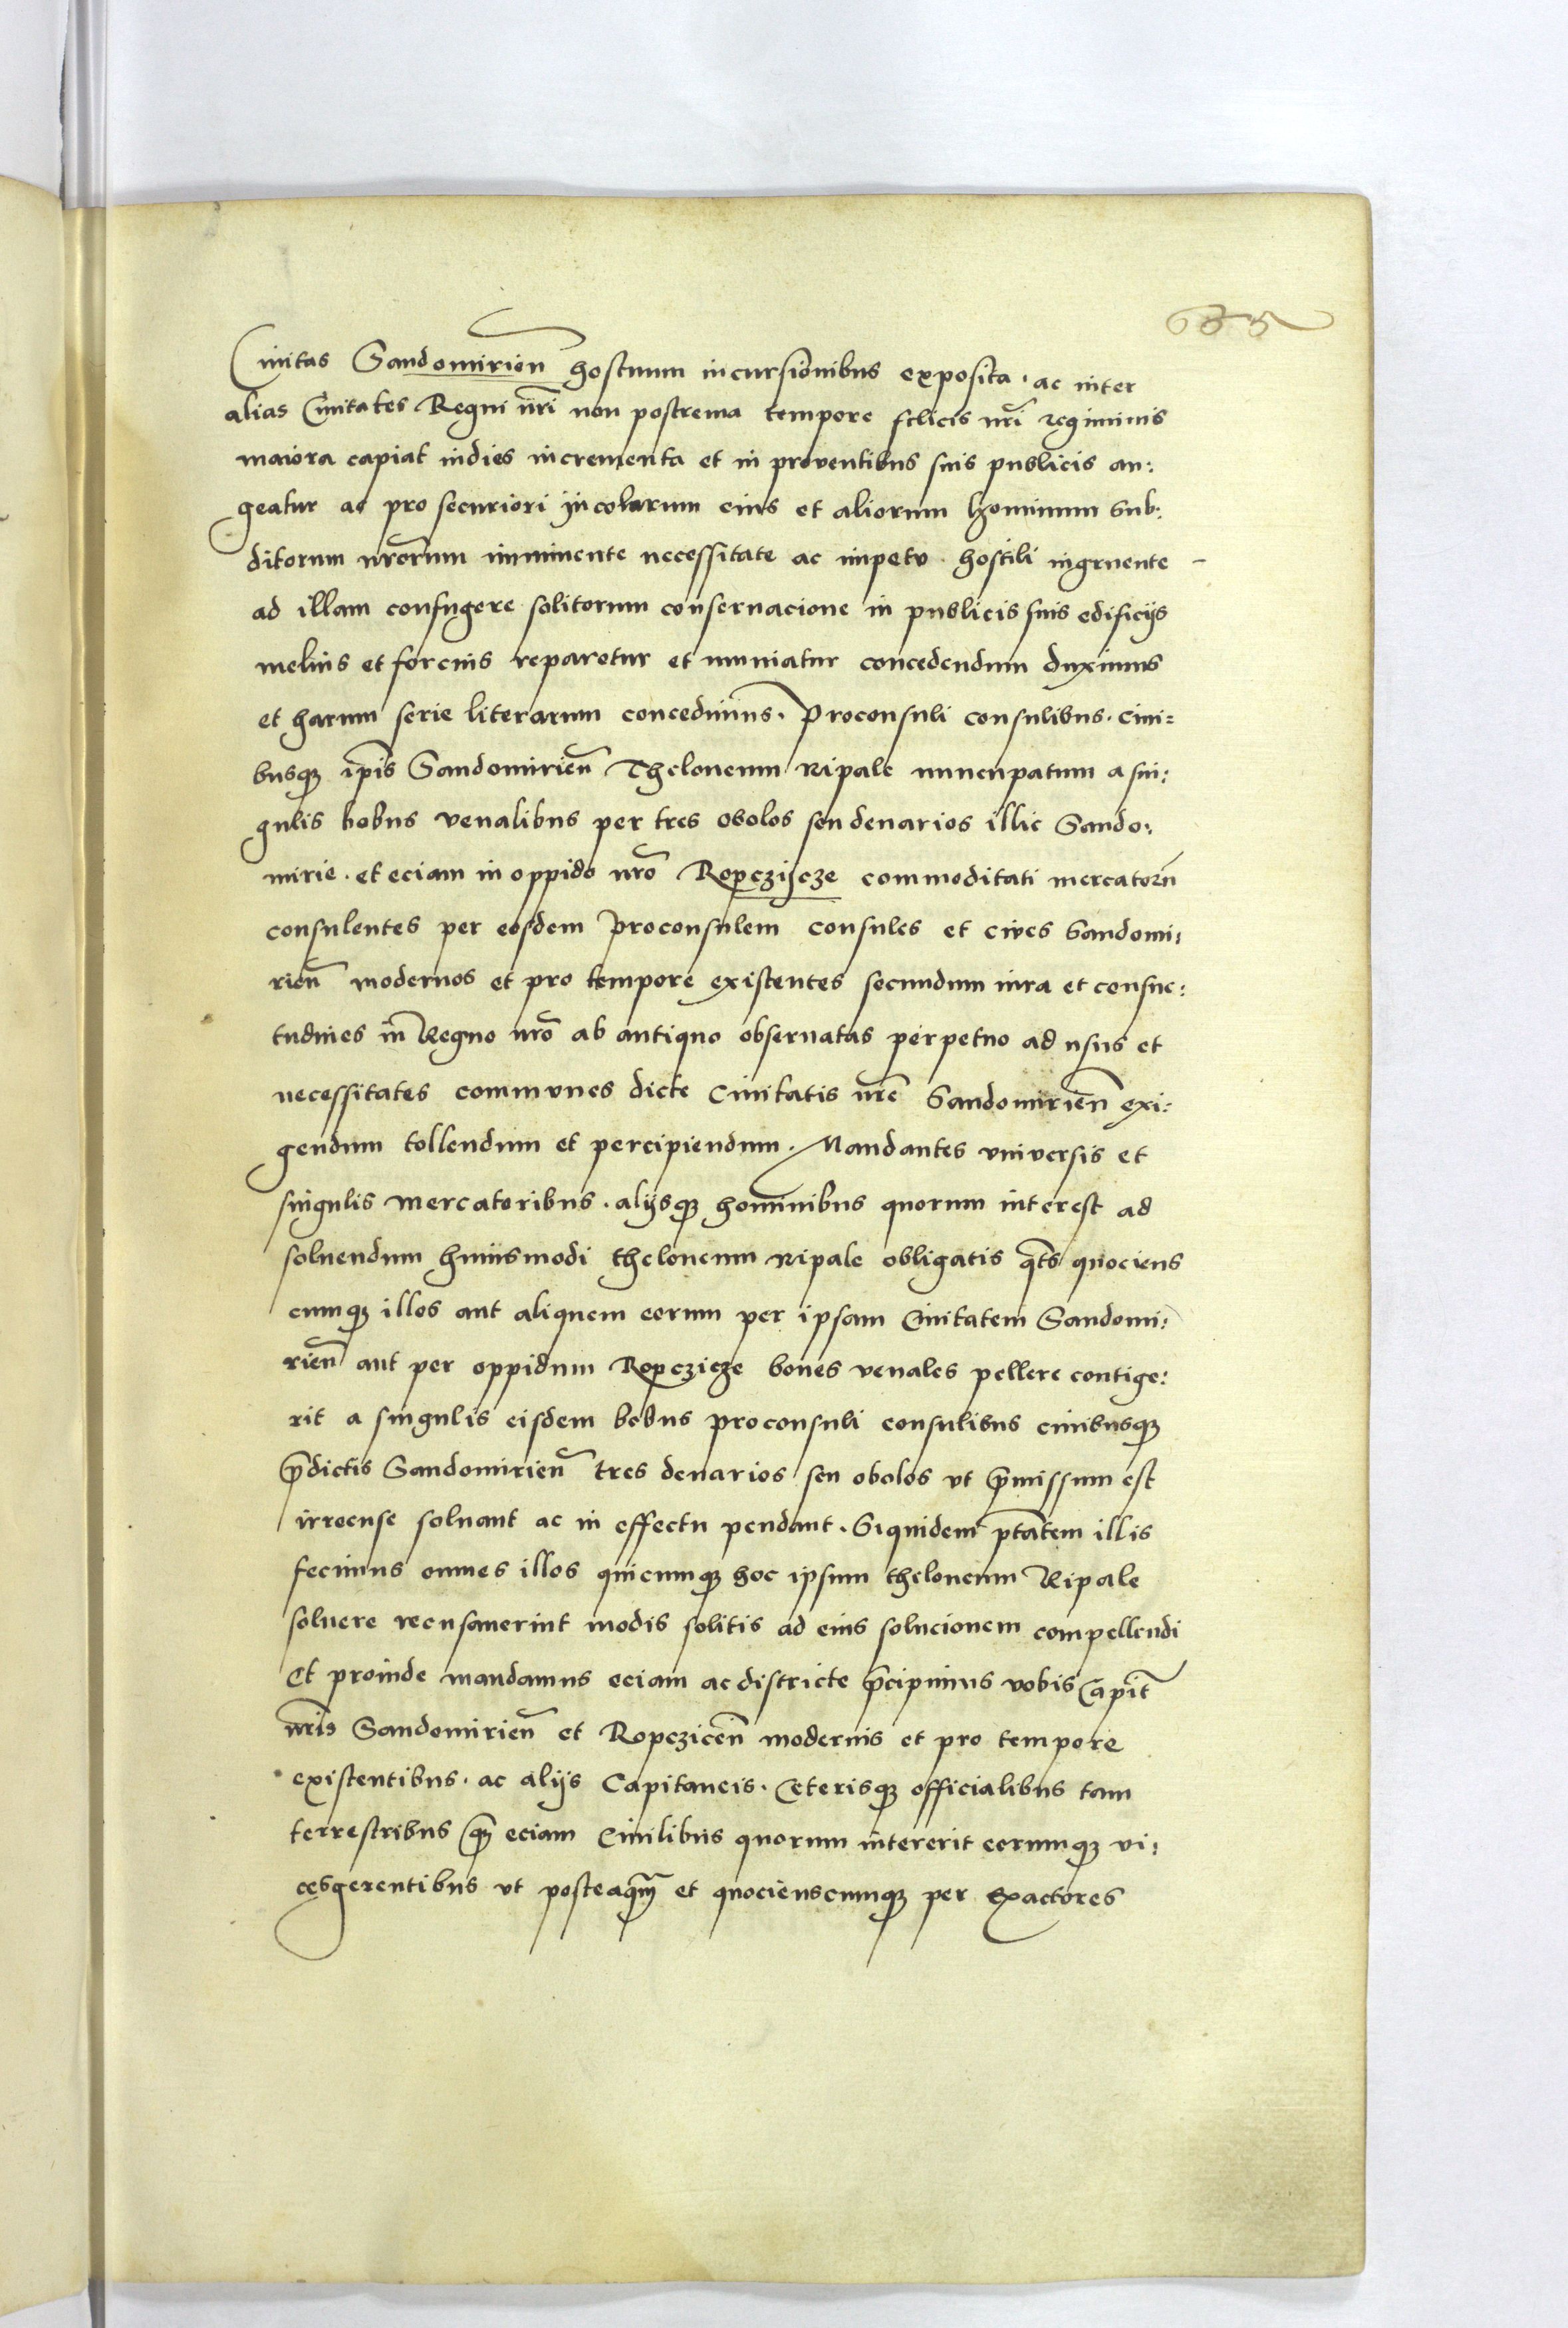 635
Ciuitas Sandomirien̄ hostium incursionibus exposita. ac inter
alias Ciuitates Regni nr̄i non postrema tempore felicis nr̄i regiminis
maiora capiat indies incrementa et in proventibus suis publicis au:
geatur ac pro securiori Incolarum eius et aliorum hominum Sub:
ditorum nr̄orum imminente necessitate ac impetu hostili ingruente –
ad illam confugere solitorum conseruacione in publicis suis edificijs
melius et forcius reparetur et muniatur concedendum duximus
et harum serie literarum concedimus. Proconsuli consulibus. ciui=
busqꝫ ip̄is Sandomirien̄ Theloneum Ripale nuncupatum a sin:
gulis bobus venalibus per tres obolos seu denarios illic Sando:
mirie. et eciam in oppido nr̄o Ropczijcze commoditati mercatorū
consulentes per eosdem Proconsulem consules et cives Sandomi:
rien̄ modernos et pro tempore existentes secundum iura et consue:
tudines in Regno nr̄o ab antiquo obseruatas perpetuo ad usus et
necessitates communes dicte Ciuitatis nr̄e Sandomirien̄ exi:
gendum tollendum et percipiendum. Mandantes vniversis et
singulis mercatoribus. alijsqꝫ hominibus quorum interest ad
soluendum huiusmodi theloneum Ripale obligatis qt̄s quociens
cunqꝫ illos aut aliquem eorum per ipsam Ciuitatem Sandomi:
rien̄ aut per oppidum Ropczicze boues venales pellere contige:
rit a singulis eisdem bobus proconsuli consulibus ciuibusqꝫ
p̄dictis Sandomirien̄ tres denarios seu obolos vt p̄missum est
irrecuse soluant ac in effectu pendant. Siquidem p̄tatem illis
fecimus omnes illos quicunqꝫ hoc ipsum theloneum Ripale
soluere recusauerint modis solitis ad eius solucionem compellendi
Et proinde mandamus eciam ac districte p̄cipimus vobis Capit̄
nr̄is Sandomirien̄ et Ropczicen̄ modernis et pro tempore
existentibus. ac alijs Capitaneis. Ceterisqꝫ officialibus tam
terrestribus qꝫ eciam Ciuilibus quorum intererit eorumqꝫ vi:
cesgerentibus vt posteaqꝫ et quocienscunqꝫ per exactores